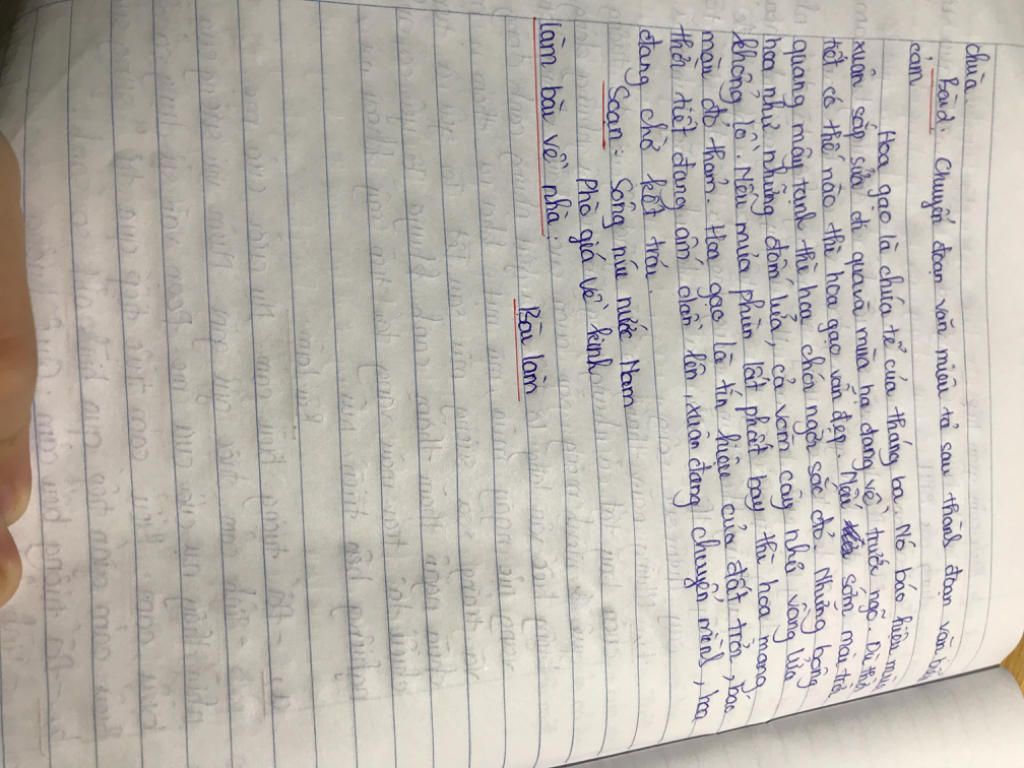 chùa.
Bài d: Chuyển đoạn văn miêu tả sau thành đoạn văn biểu
cảm
Hoa gạo là chúa tể của tháng ba. Nó báo hiệu mùa
xuân sắp sửa đi qua và mùa hạ đang về trước ngõ. Dù thời
tiết có thế nào thì hoa gạo vẫn đẹp. Nếu sớm mai trời
quang mây tạnh thì hoa chói ngời sắc đỏ. Những bông
hoa như những đốm lửa, cả vòm cây như vầng lửa
khổng lồ. Nếu mưa phùn lất phất bay thì hoa mang
màu đỏ thẫm. Hoa gạo là tín hiệu của đất trời, báo
thời tiết đang ấm dần lên, xuân đang chuyển mình, hoa
đang chờ kết trái.
Soạn: Sông núi nước Nam
Phò giá về kinh
Làm bài về nhà.
Bài làm